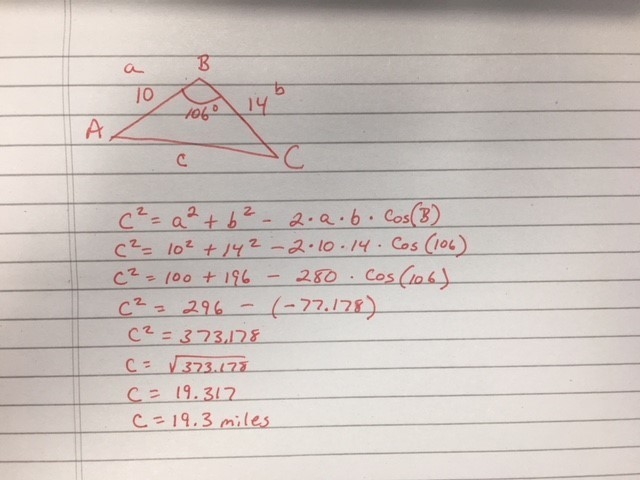 a B
10 106° 14 b
A c C
C² = a² + b² - 2·a·b·Cos(B)
C² = 10² + 14² - 2·10·14·Cos(106)
C² = 100 + 196 - 280·Cos(106)
C² = 296 - (-77.178)
C² = 373.178
C = √373.178
C = 19.317
C = 19.3 miles